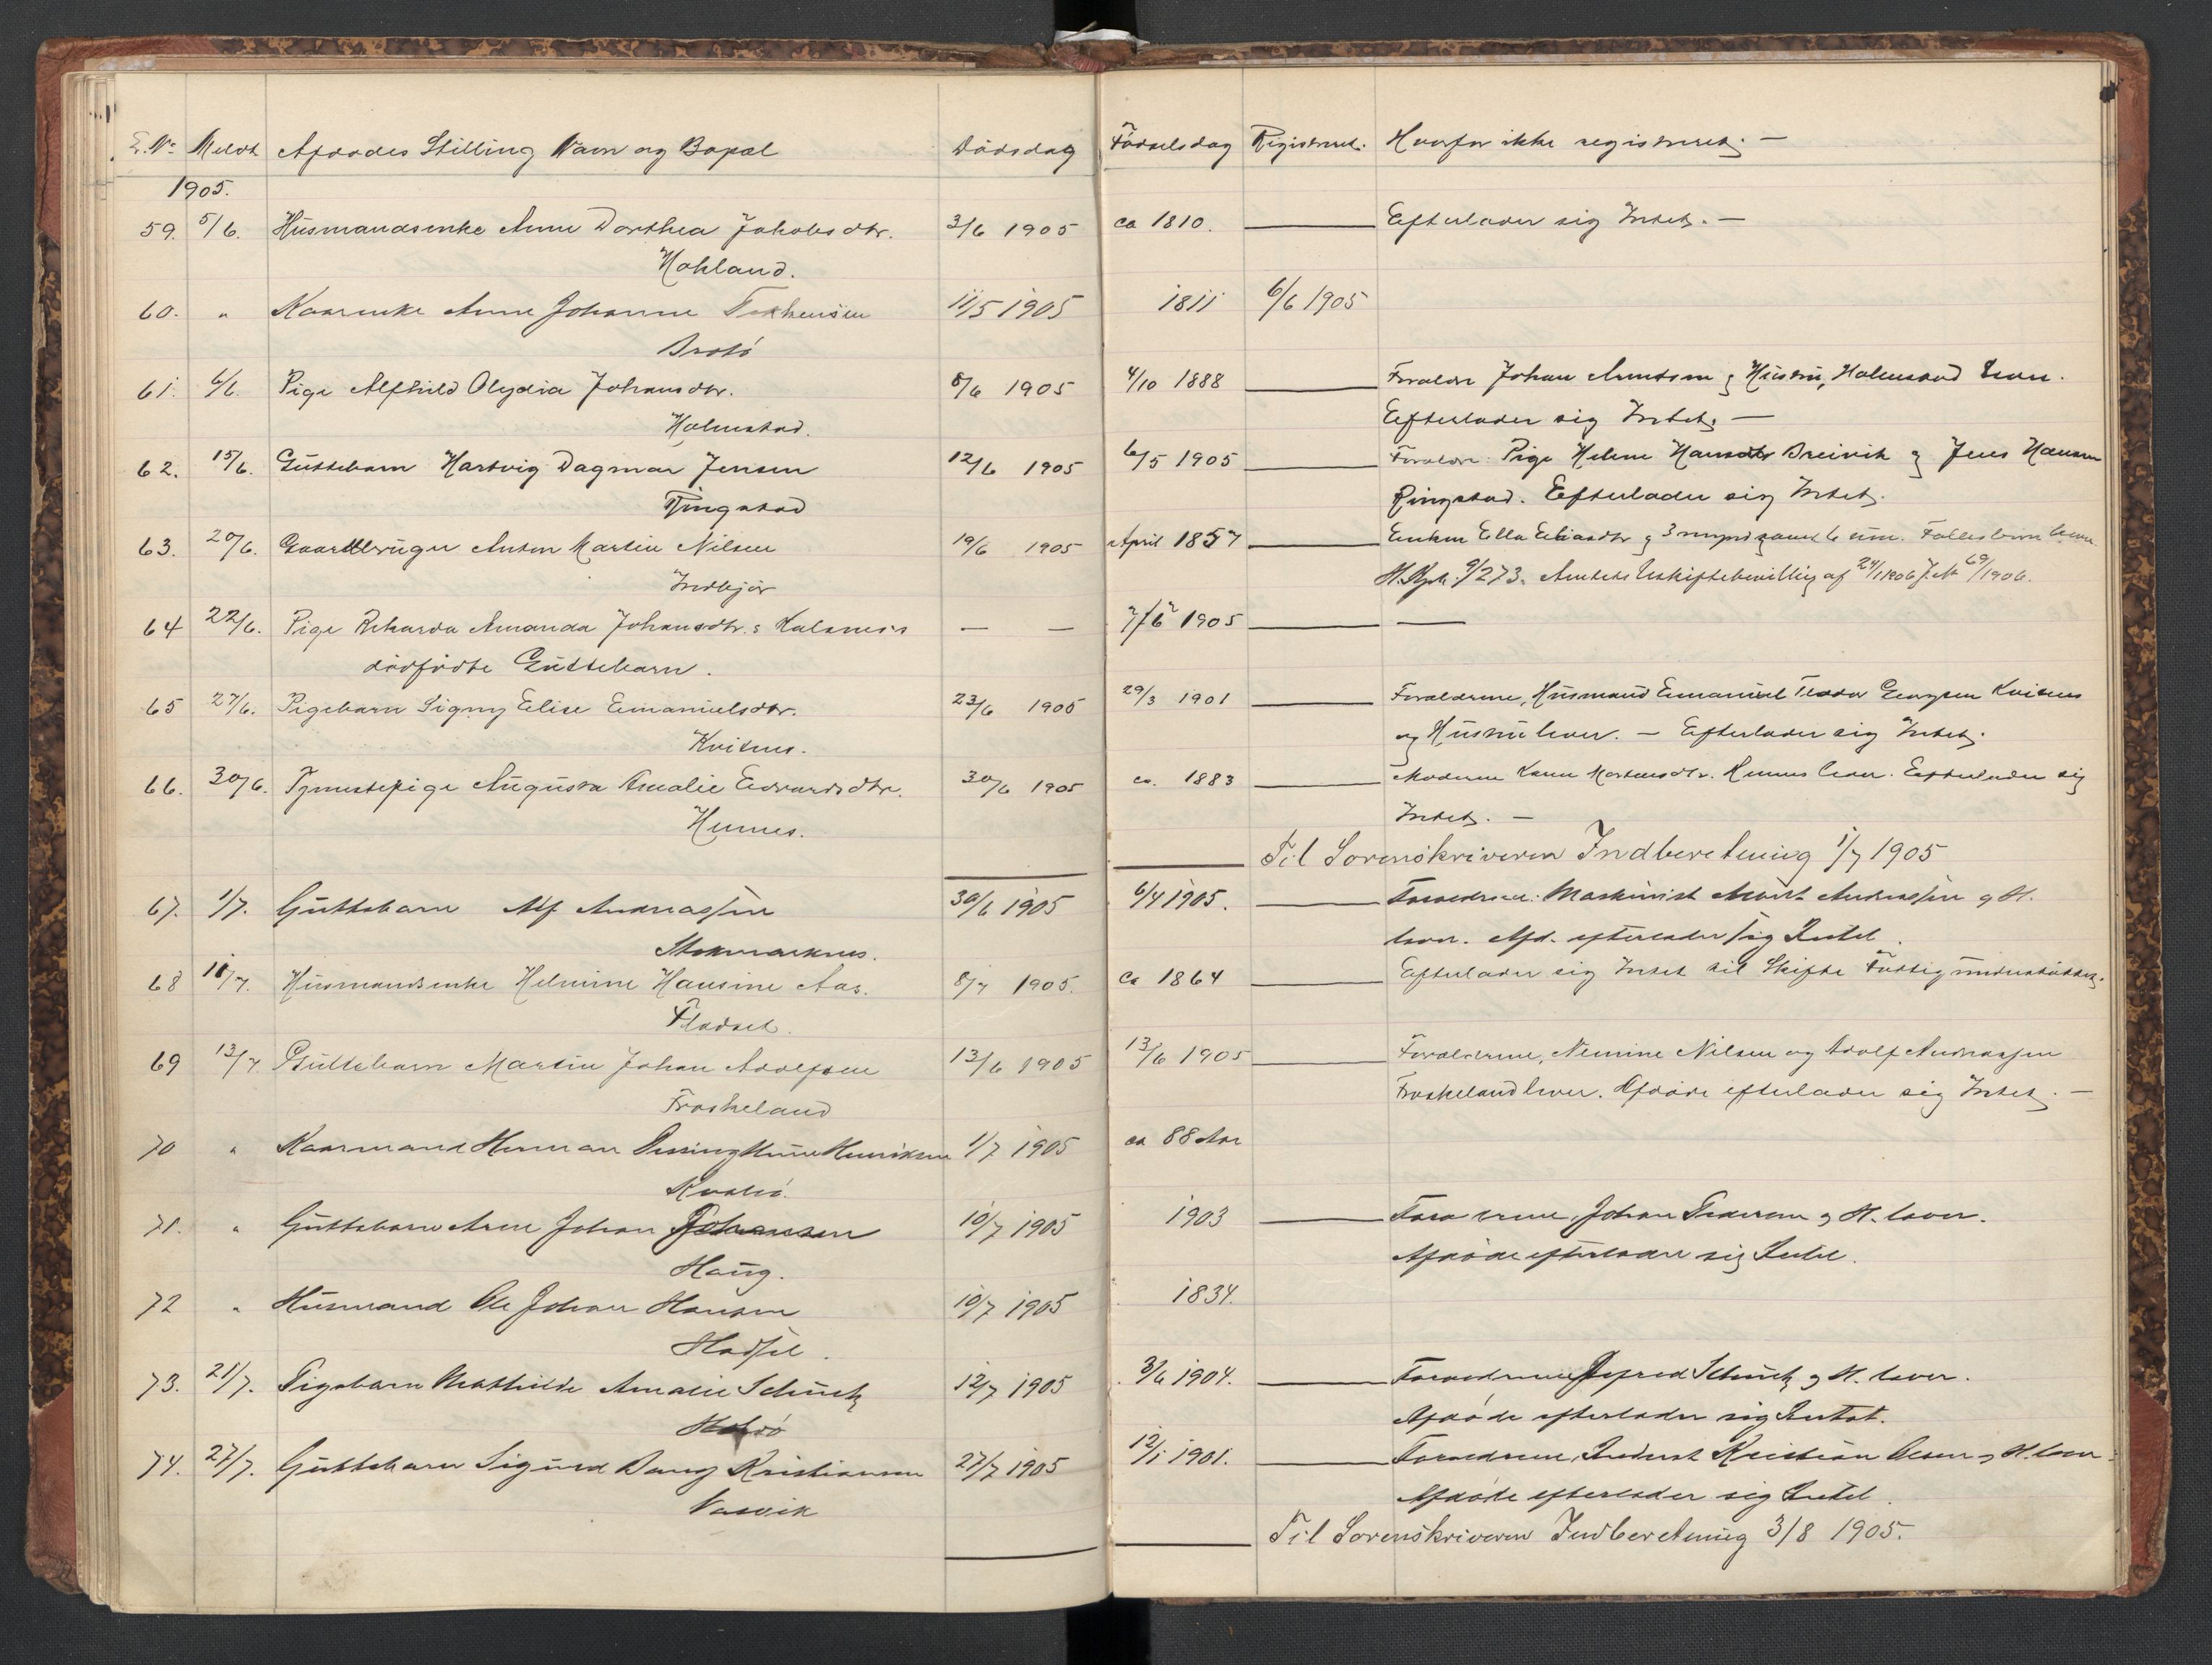 L.No Meldt Afdødes Stilling Navn og Bopæl Dødsdag Fødselsdag Registreret. Hvorfor ikke registreret. —
1905.
59. 5/6. Husmandsenke Anne Dorthea Jakobsdtr. 3/6 1905 ca 1810. Efterlader sig Intet. —
Hokland.
60. " Kaarenke Anne Johanne 11/5 1905 1811 6/6 1905
Brotø
61. 6/6. Pige Alfhild Olydia Johansdtr. 5/6 1905 4/10 1888 Forældre Johan Arntsen og Hustru, Holmstad lever.
Holmstad. Efterlader sig Intet. —
62. 15/6. Guttebarn Hartvig Dagmar Jensen 12/6 1905 6/5 1905 Forældre: Pige Helene Hansdtr Breivik og Jens Hansen
Ringstad Ringstad. Efterlader sig Intet.
63. 20/6. Gaardbruger Anton Martin Nilsen 19/6 1905 April 1857 Enken Ella Eliasdtr og 3 mynd. samt 6 um. Fællesbørn lever.
Indbjør 9/273. Amtets Uskiftebevilling af 24/1 1906 J.No 69/1906.
64 22/6. Pige Rikarda Amanda Johansdtr.s Kalsnes's — — 7/6 1905 —
dødfødte Guttebarn.
65 27/6. Pigebarn Signy Elise Emanuelsdtr. 23/6 1905 29/3 1901 Forældrene, Husmand Emanuel Teodor Georgsen Kvitnes
Kvitnes. og Hustru lever. — Efterlader sig Intet.
66. 30/6. Tjenestepige Augusta Amalie Edvardsdtr. 30/6 1905 ca. 1883 Moderen Karen Mortensdtr. Hennes lever. Efterlader sig
Hennes. Intet. —
Til Sorenskriveren Indberetning 1/7 1905
67. 1/7. Guttebarn Alf Andreassen 30/6 1905 6/4 1905. Forældrene: Maskinist Andreassen og H.
Stokmarknes. lever. Afd. efterlader sig Intet.
68 11/7. Husmandsenke Helmine Hansine Aas. 8/7 1905. Ca 1864 Efterlader sig Intet til Skifte Fattigunderstøttet.
Fladset.
69 13/7 Guttebarn Martin Johan Adolfsen 13/6 1905 13/6 1905 Forældrene, Nemine Nilsen og Adolf Andreassen
Froskeland Froskeland lever. Afdøde efterlader sig Intet. —
70 " Kaarmand Herman Henriksen 1/7 1905 ca 88 Aar
71. " Guttebarn Arne Johan Pedersen 10/7 1905 1903 Forældrene, Johan Pedersen og H. lever.
Haug. Afdøde efterlader sig Intet.
72 " Husmand Ole Johan Hansen 10/7 1905 1834.
Hadsel.
73. 21/7. Pigebarn Mathilde Amalie Schütz 12/7 1905 3/6 1904. Forældrene Schütz og H. lever.
Afdøde efterlader sig Intet.
74. 27/7. Guttebarn Sigurd Kristiansen 27/7 1905 12/1 1901. Forældrene, Inderst Kristian Olsen og H. lever.
Vasvik Afdøde efterlader sig Intet.
Til Sorenskriveren Indberetning 3/8 1905.